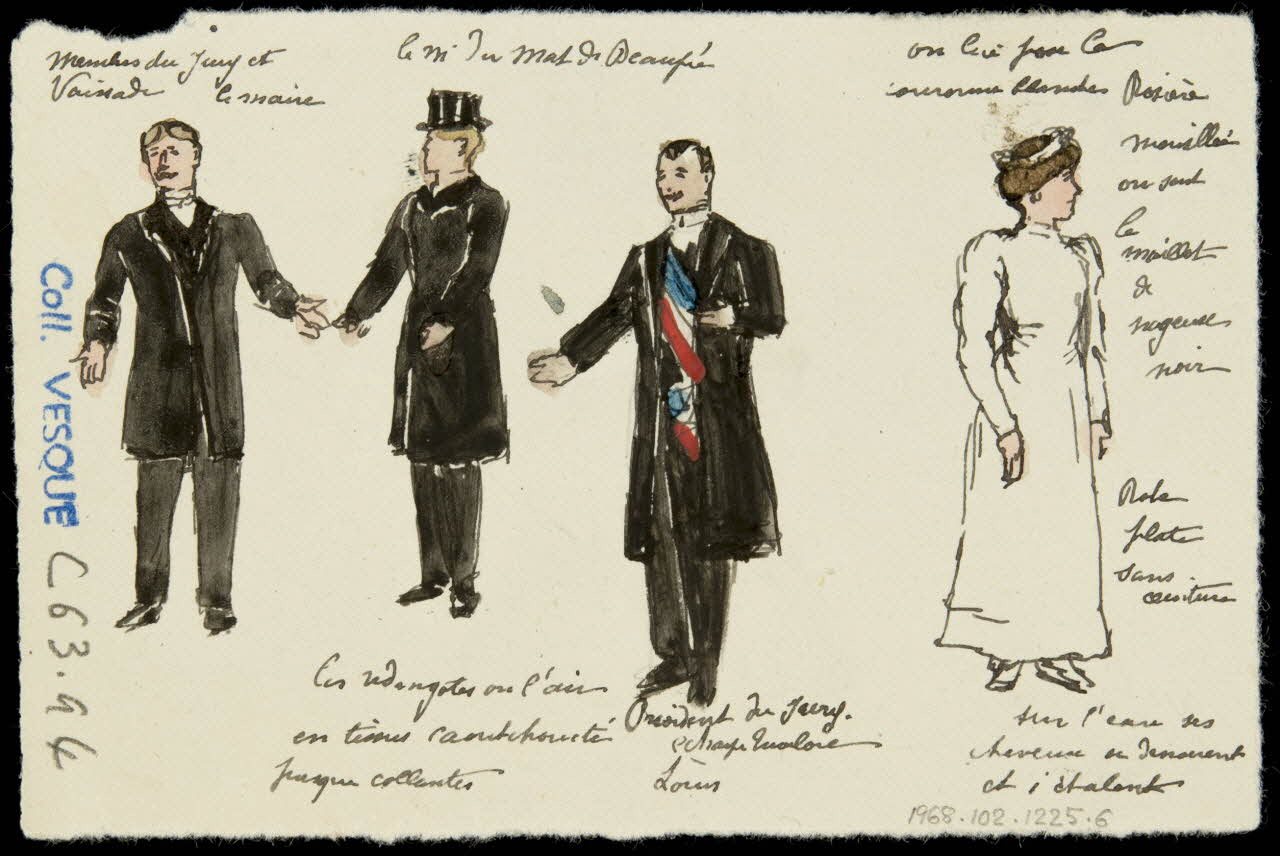 membres du jury et
Vaissade le maire
le Mt du Mat de Beaupré
on lui pose la
couronne blanche
Rosière
mouillée
on sent
le
maillot
de
nageuse
noir
Robe
plate
sans
ceinture
les redingotes ont l'air
en tissus caoutchouté
presque collantes
President du Jury.
echarpe tricolore
sur l'eau ses
cheveux se denouent
et s'étalent
Coll. VESQUE C63.94
1968.102.1225.6